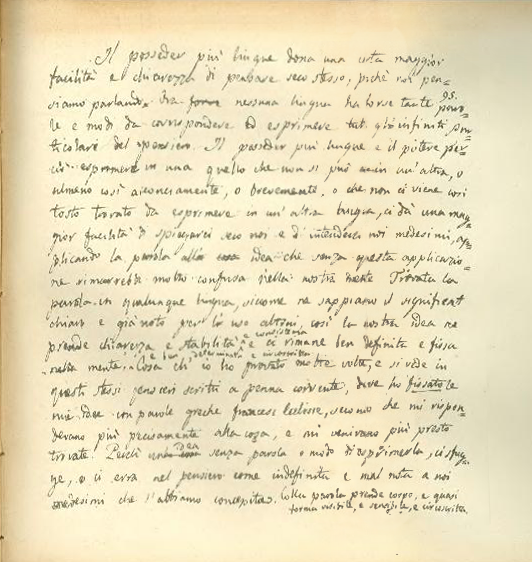 Il posseder più lingue dona una certa maggior
facilità e chiarezza di pensare seco stesso, perchè noi pen-
siamo parlando. Ora forse nessuna lingua ha forse tante paro- 95
le e modi da corrispondere ed esprimere tutti gl'infiniti par-
ticolari del pensiero. Il posseder più lingue e il potere per-
ciò esprimere in una quello che non si può in un'altra, o
almeno così acconciamente, o brevemente, o che non ci viene così
tosto trovato da esprimere in un'altra lingua, ci dà una mag-
gior facilità di spiegarci seco noi e d'intenderci noi medesimi, ap-
plicando la parola all'idea che senza questa applicazio-
ne rimarrebbe molto confusa nella nostra mente. Trovata la
parola in qualunque lingua, siccome ne sappiamo il significato
chiaro e già noto per l'uso altrui, così la nostra idea ne
prende chiarezza e stabilità e consistenza e ci rimane ben definita e fissa
nella mente, e ben determinata e circoscritta. Cosa ch'io ho provato molte volte, e si vede in
questi stessi pensieri scritti a penna corrente, dove ho fissato le
mie idee con parole greche francesi latine, secondo che mi rispon-
devano più precisamente alla cosa, e mi venivano più presto
trovate. Perchè un'idea senza parola o modo di esprimerla, ci sfug-
ge, o ci erra nel pensiero come indefinita e mal nota a noi
medesimi che l'abbiamo concepita. Colla parola prende corpo, e quasi
forma visibile, e sensibile, e circoscritta.